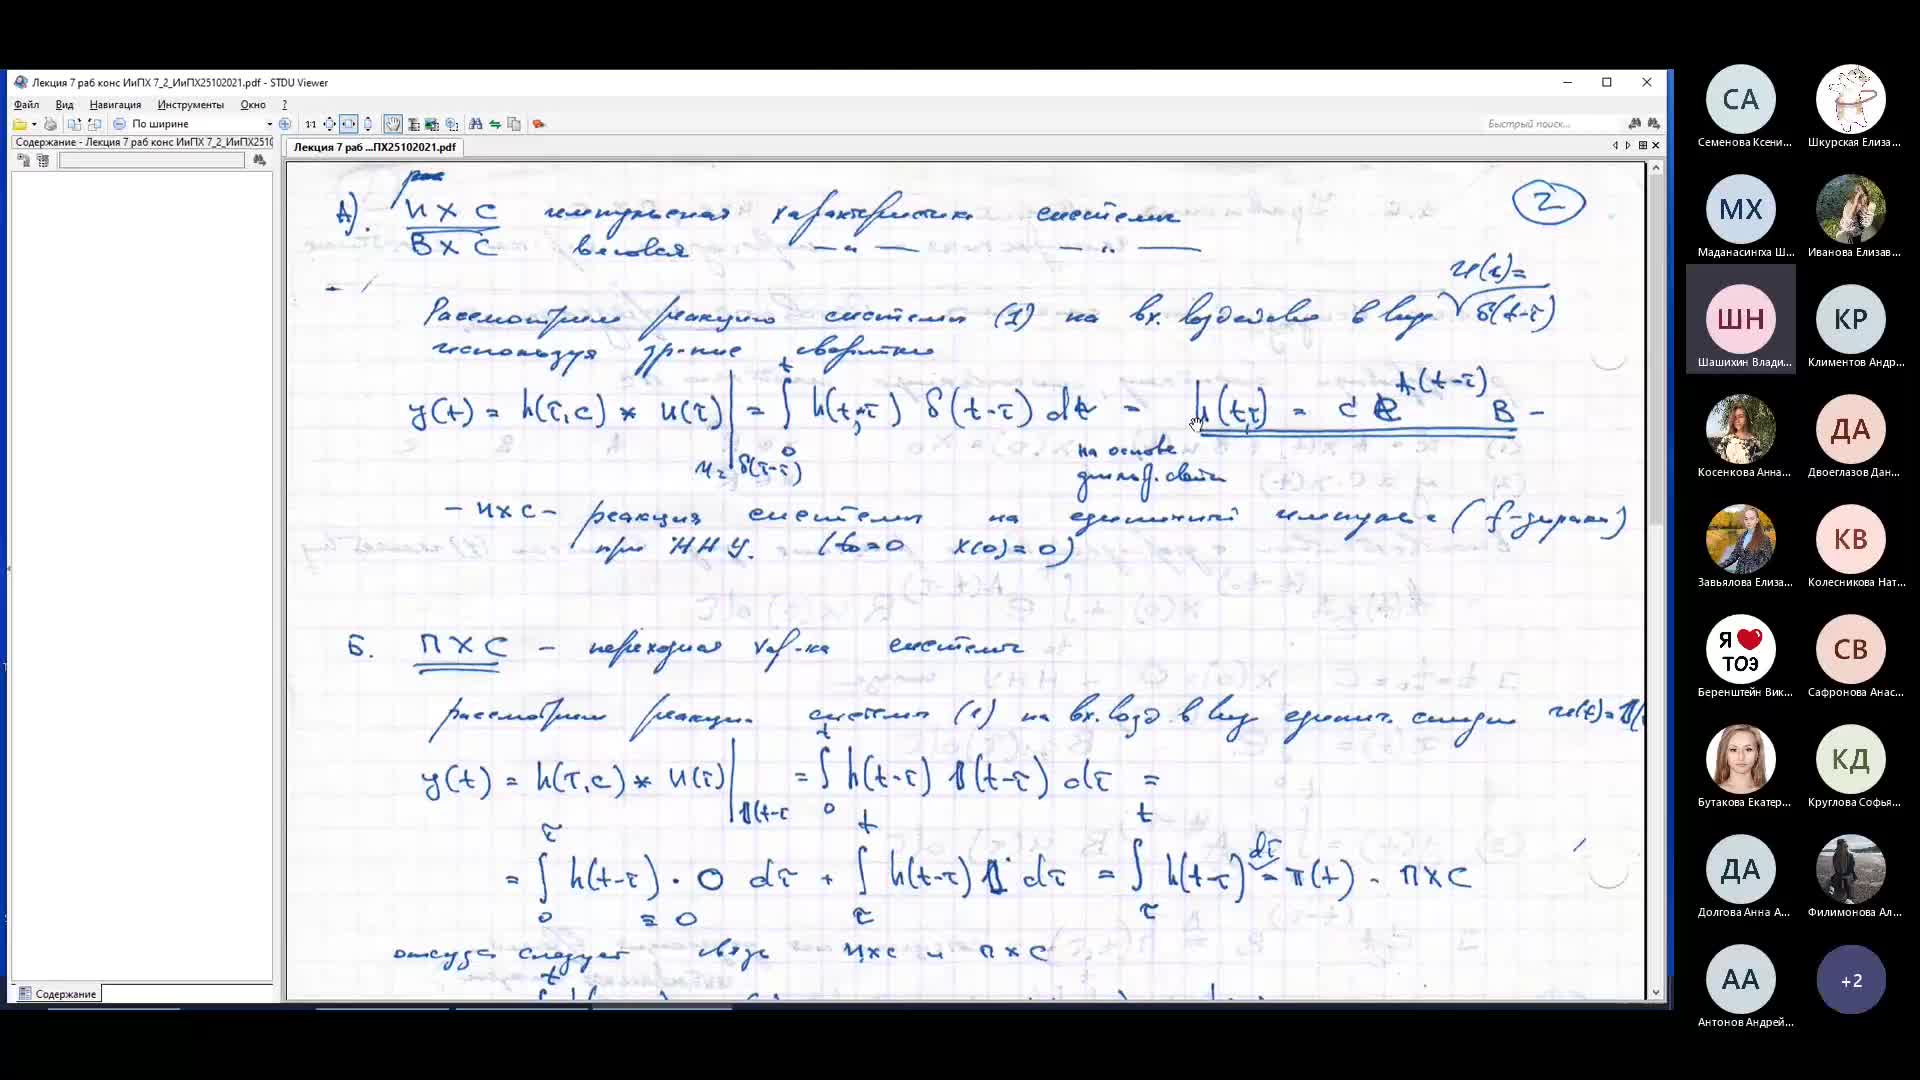 Лекция 7 раб конс ИиПХ 7_2_ИиПХ25102021.pdf - STDU Viewer
Файл Вид Навигация Инструменты Окно ?
По ширине
1:1
Быстрый поиск...
Содержание - Лекция 7 раб конс ИиПХ 7_2_ИиПХ2510
Лекция 7 раб ...ПХ25102021.pdf
2
А). ИХС импульсная характеристика системы
ВХС весовая —"— —"—
u(t)=
Рассмотрим реакцию системы (1) на вх. воздействие в виде δ(t-τ)
используя ур-ние свертки
y(t) = h(τ,c) * u(τ) | = ∫ h(t,τ) δ(t-τ) dτ = h(t,τ) = C e^A(t-τ) B -
t
0
на основе
- ИХС - реакция системы на единичный импульс (f-дирака)
при ННУ. (t0=0 x(0)=0)
Б. ПХС - переходная хар-ка системы
рассмотрим реакцию системы (1) на вх. возд в виде единич. u(t)=1(
y(t) = h(τ,c) * u(τ) | 1(t-τ = ∫ h(t-τ) 1(t-τ) dτ =
= ∫ h(t-τ) · 0 dτ + ∫ h(t-τ) 1 dτ = ∫ h(t-τ) dτ = π(t) - ПХС
0 ≡ 0 τ τ
откуда следует связь ИХС и ПХС
Содержание
СА
Семенова Ксени...
Шкурская Елиза...
МХ
Маданасингха Ш...
Иванова Елизав...
ШН
Шашихин Влади...
КР
Климентов Андр...
Косенкова Анна...
ДА
Двоеглазов Дан...
Завьялова Елиза...
КВ
Колесникова Нат...
Я
ТОЭ
Беренштейн Вик...
СВ
Сафронова Анас...
Бутакова Екатер...
КД
Круглова Софья...
ДА
Долгова Анна А...
Филимонова Ал...
АА
Антонов Андрей...
+2